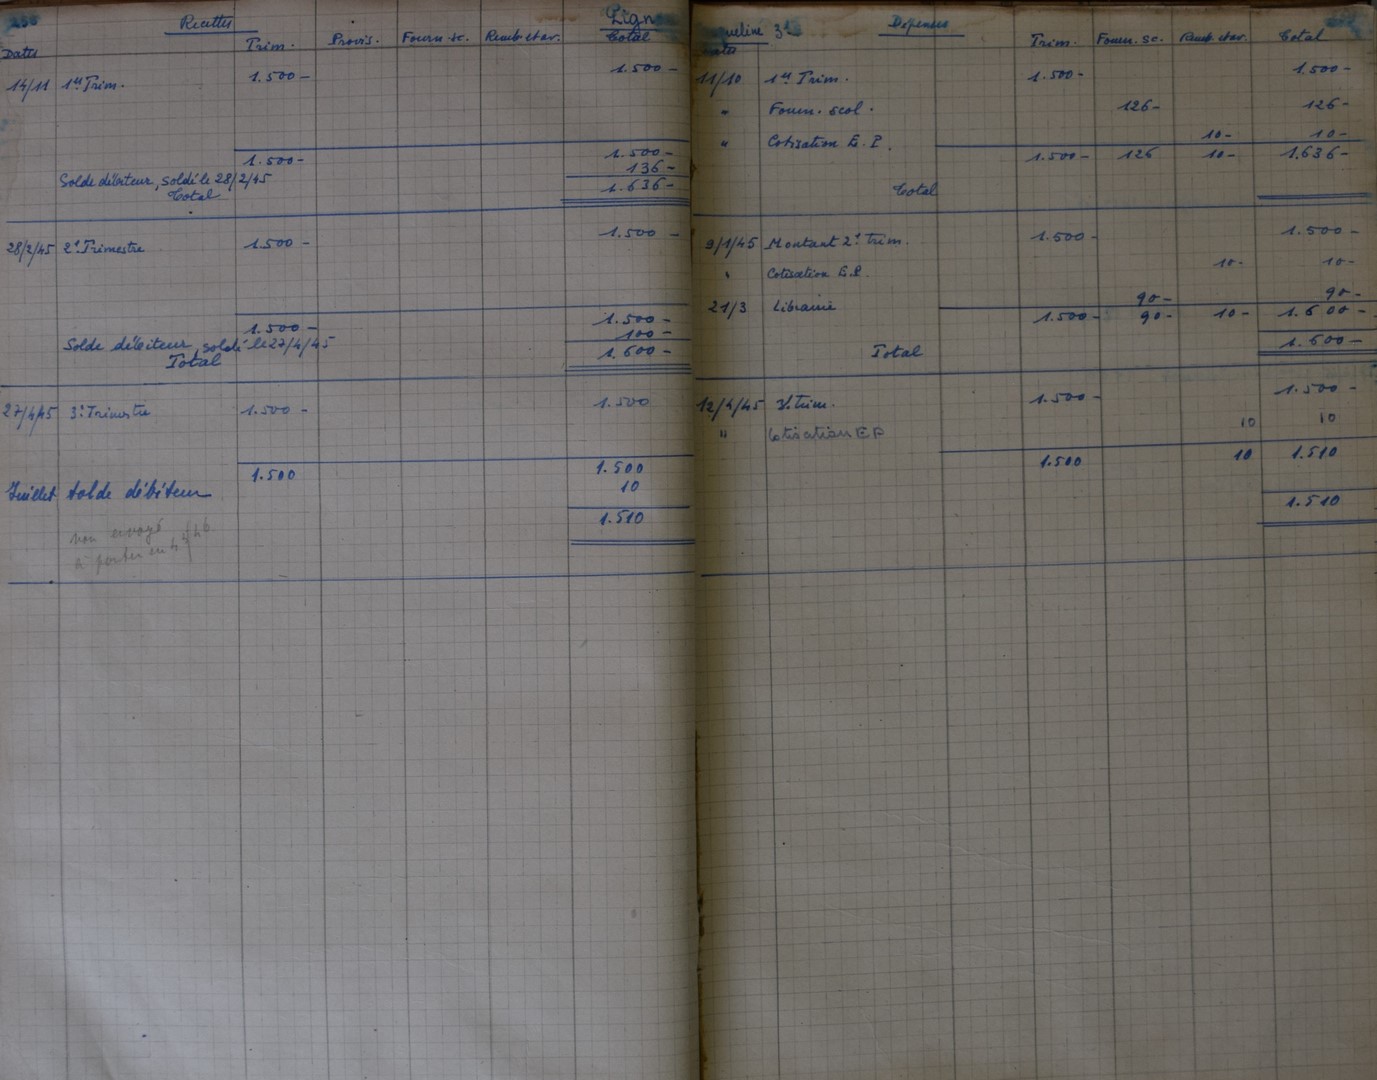 256 Recettes Lign
Dates Trim. Provis. Fourn. sc. Remb. et av. Total
14/11 1er Trim. 1.500 - 1.500 -
1.500 - 1.500 -
Solde débiteur, soldé le 28/2/45 136 -
Total 1.636 -
28/2/45 2e Trimestre 1.500 - 1.500 -
1.500 - 1.500 -
Solde débiteur, soldé le 27/4/45 100 -
Total 1.600 -
27/4/45 3e Trimestre 1.500 - 1.500
1.500 1.500
Juillet solde débiteur 10
1.510
non envoyé
à porter en 45/46
queline 3e Dépenses
ates Trim. Fourn. sc. Remb. et av. Total
11/10 1er Trim. 1.500 - 1.500 -
" Fourn. scol. 126 - 126 -
" Cotisation E. P. 10 - 10 -
1.500 - 126 10 - 1.636 -
Total
9/1/45 Montant 2e Trim. 1.500 - 1.500 -
" Cotisation E.P. 10 - 10 -
21/3 Librairie 90 - 90 -
1.500 - 90 - 10 - 1.600 -
Total 1.600 -
12/4/45 3e trim. 1.500 - 1.500 -
" Cotisation E P 10 10
1.500 10 1.510
1.510